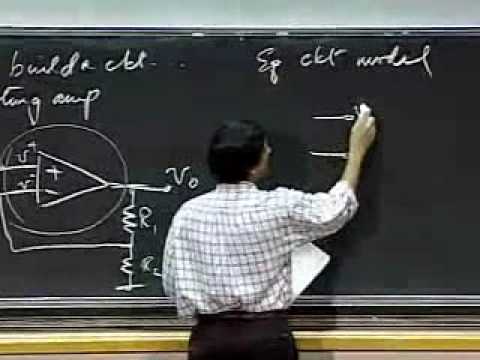 build a ckt...
ting amp
v⁺
+
v⁻
−
v₀
R₁
R₂
Eq ckt model